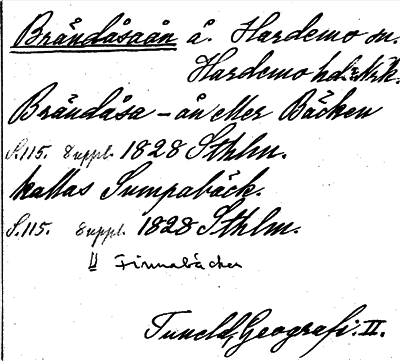 Brändåsaån å. Hardemo sn.
Hardemo hd. Nrk.
Brändåsa-ån eller Bäcken
S.115. Suppl. 1828 Sthlm.
kallas Sumpabäck.
S.115. Suppl. 1828 Sthlm.
Finnabäcken
Tuneld, Geografi. II.